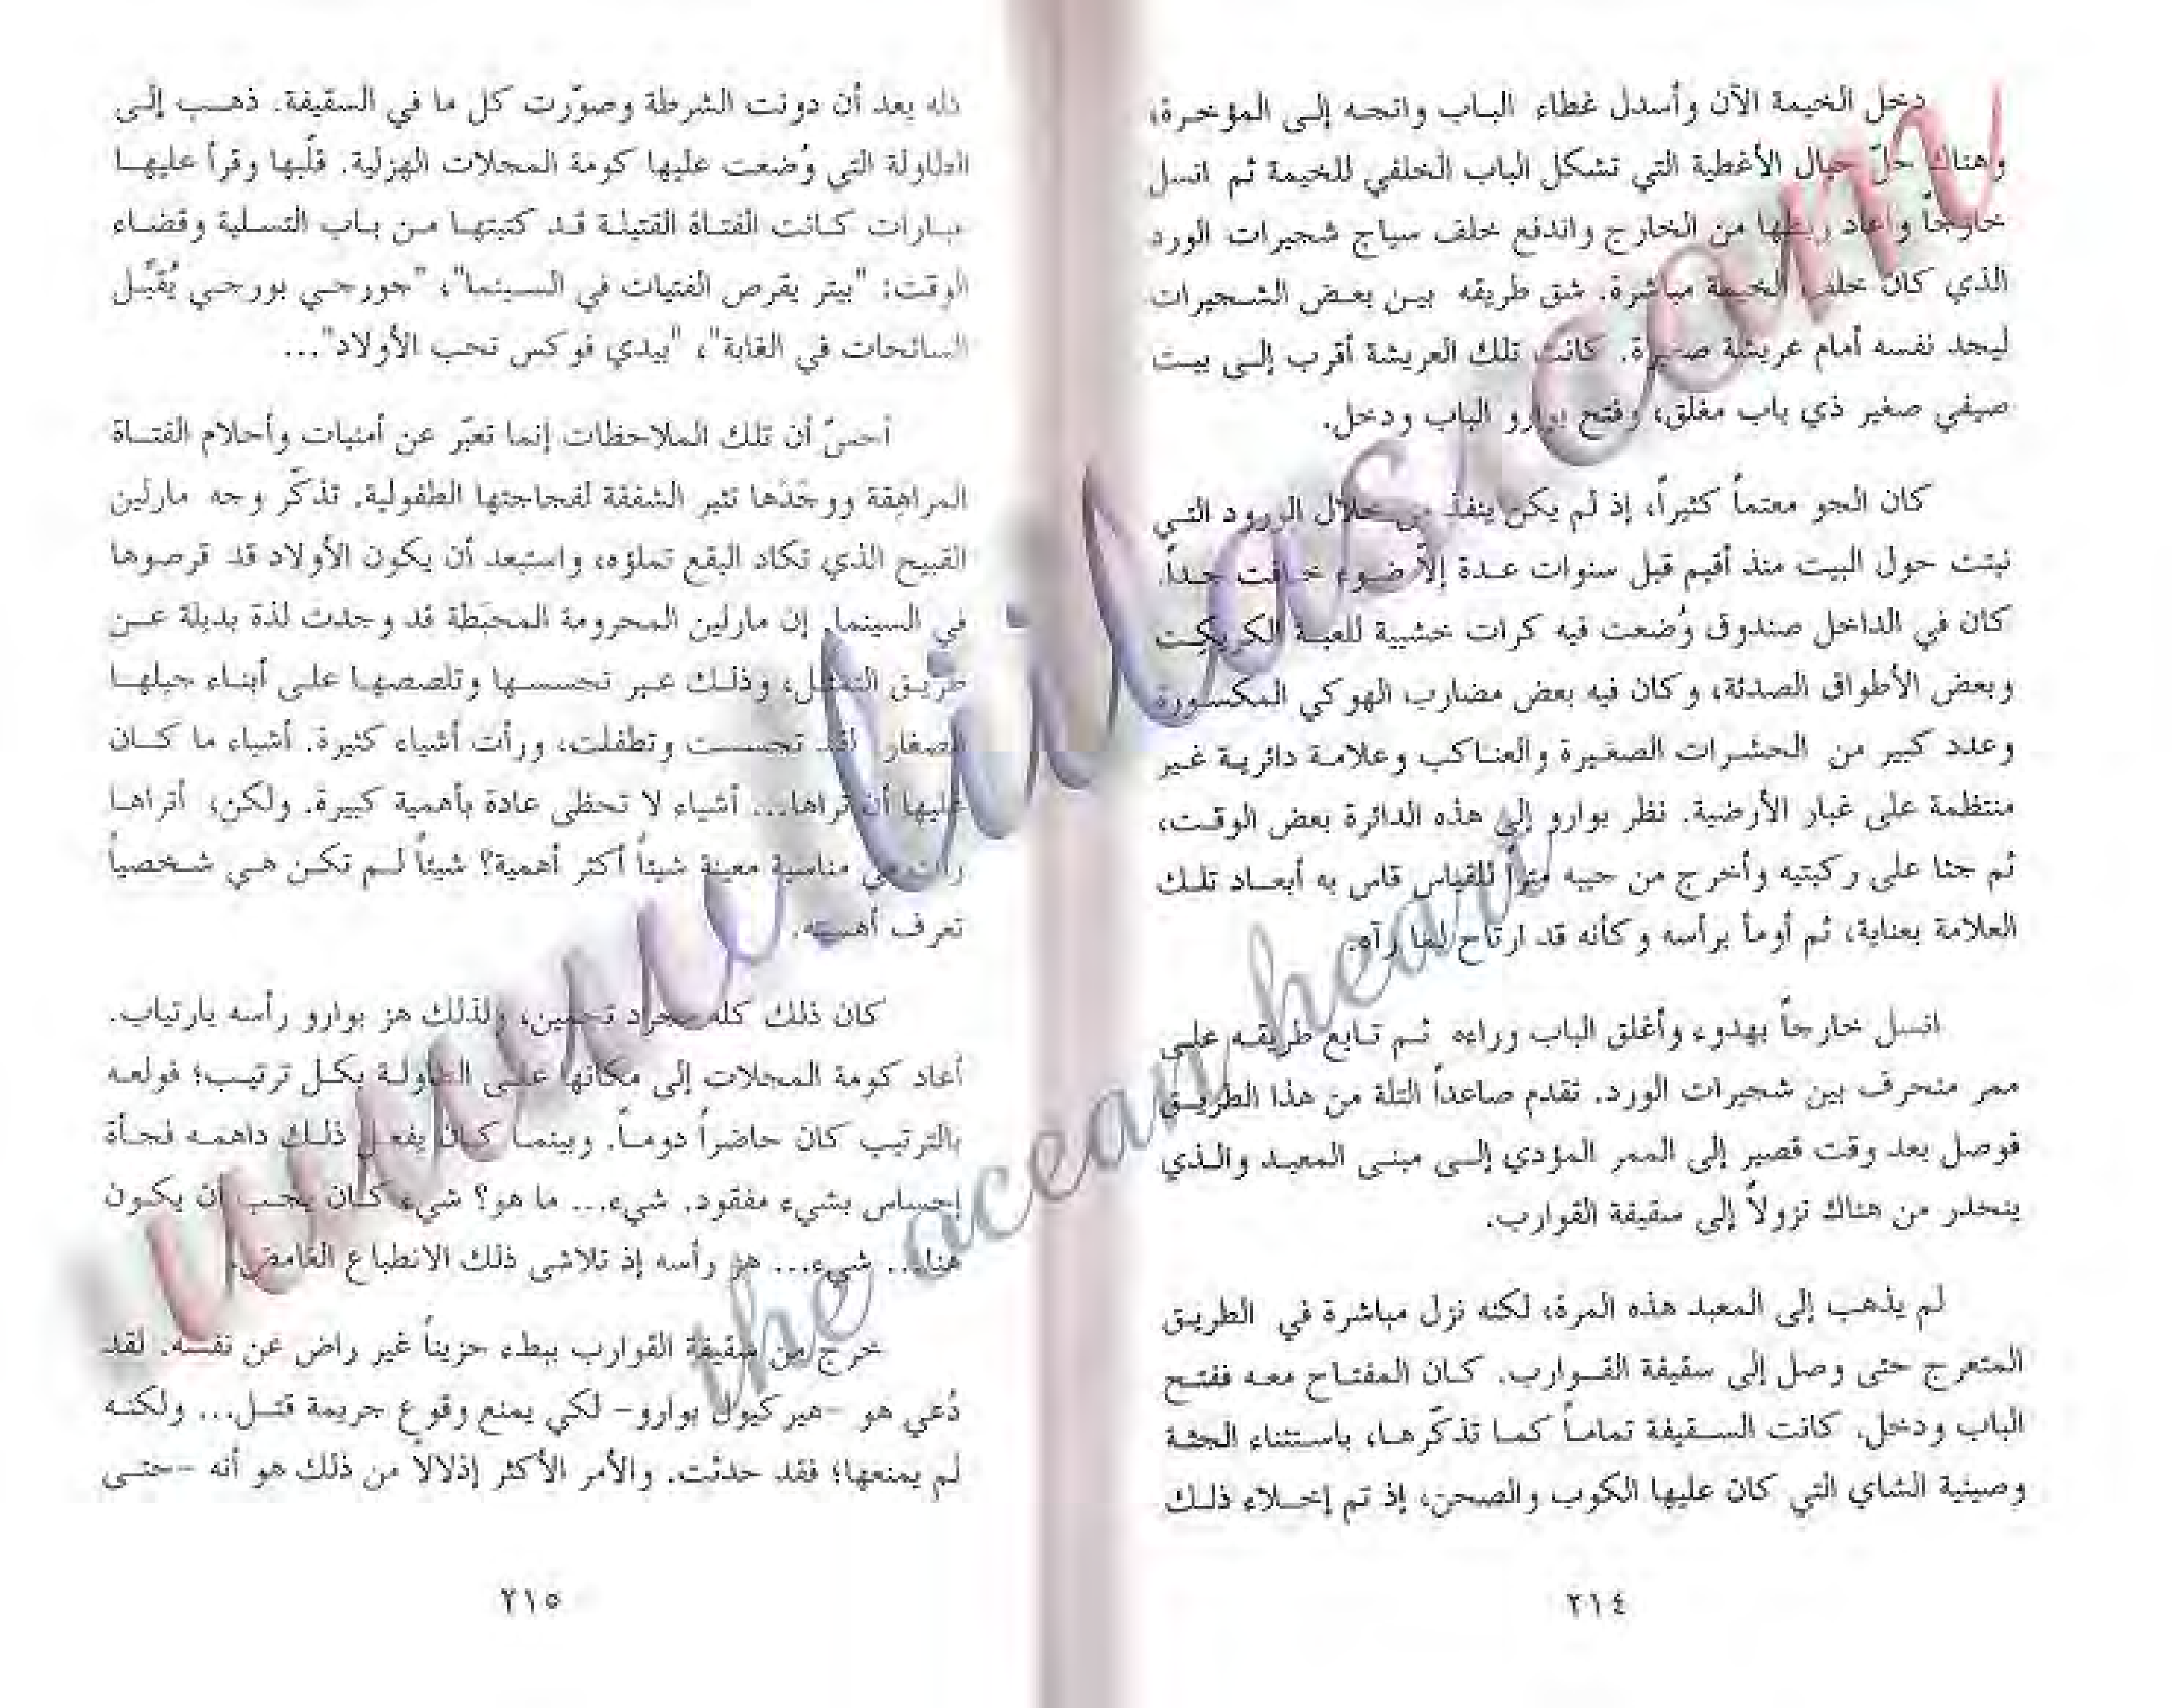 دخل الخيمة الآن وأسدل غطاء الباب واتجه إلى المؤخرة،
وهناك حلّ حبال الأغطية التي تشكل الباب الخلفي للخيمة ثم انسل
خارجاً وأعاد ربطها من الخارج واندفع خلف سياج شجيرات الورد
الذي كان خلف الخيمة مباشرة. شق طريقه بين بعض الشجيرات
ليجد نفسه أمام عريشة صغيرة. كانت تلك العريشة أقرب إلى بيت
صيفي صغير ذي باب مغلق، وفتح بوارو الباب ودخل.
كان الجو معتماً كثيراً، إذ لم يكن ينفذ من خلال الورود التي
نبتت حول البيت منذ أقيم قبل سنوات عدة إلاّ ضوء خافت جداً.
كان في الداخل صندوق وُضعت فيه كرات خشبية للعبة الكريكيت
وبعض الأطواق الصدئة، وكان فيه بعض مضارب الهوكي المكسورة
وعدد كبير من الحشرات الصغيرة والعناكب وعلامة دائرية غير
منتظمة على غبار الأرضية. نظر بوارو إلى هذه الدائرة بعض الوقت،
ثم جثا على ركبتيه وأخرج من جيبه متراً للقياس قاس به أبعاد تلك
العلامة بعناية، ثم أومأ برأسه وكأنه قد ارتاح لما رآه.
انسل خارجاً بهدوء وأغلق الباب وراءه ثم تابع طريقه على
ممر منحرف بين شجيرات الورد. تقدم صاعداً التلة من هذا الطريق
فوصل بعد وقت قصير إلى الممر المؤدي إلى مبنى المعبد والذي
ينحدر من هناك نزولاً إلى سقيفة القوارب.
لم يذهب إلى المعبد هذه المرة، لكنه نزل مباشرة في الطريق
المتعرج حتى وصل إلى سقيفة القوارب. كان المفتاح معه ففتح
الباب ودخل. كانت السقيفة تماماً كما تذكّرها، باستثناء الجثة
وصينية الشاي التي كان عليها الكوب والصحن، إذ تم إخلاء ذلك
٢١٤
كله بعد أن دونت الشرطة وصوّرت كل ما في السقيفة. ذهب إلى
الطاولة التي وُضعت عليها كومة المجلات الهزلية. قلّبها وقرأ عليها
عبارات كانت الفتاة القتيلة قد كتبتها من باب التسلية وقضاء
الوقت: "بيتر يقرص الفتيات في السينما"، "جورجي بورجي يُقبّل
السائحات في الغابة"، "بيدي فوكس تحب الأولاد"...
أحسّ أن تلك الملاحظات إنما تعبّر عن أمنيات وأحلام الفتاة
المراهقة ووجَدَها تثير الشفقة لفجاجتها الطفولية. تذكّر وجه مارلين
القبيح الذي تكاد البقع تملؤه، واستبعد أن يكون الأولاد قد قرصوها
في السينما. إن مارلين المحرومة المحبَطة قد وجدت لذة بديلة عن
طريق التمثل، وذلك عبر تجسسها وتلصصها على أبناء جيلها
الصغار. لقد تجسست وتطفلت، ورأت أشياء كثيرة. أشياء ما كان
عليها أن تراها... أشياء لا تحظى عادة بأهمية كبيرة. ولكن، أتراها
رأت في مناسبة معينة شيئاً أكثر أهمية؟ شيئاً لم تكن هي شخصياً
تعرف أهميته.
كان ذلك كله مجرد تخمين، ولذلك هز بوارو رأسه بارتياب.
أعاد كومة المجلات إلى مكانها على الطاولة بكل ترتيب؛ فولعه
بالترتيب كان حاضراً دوماً. وبينما كان يفعل ذلك داهمه فجأة
إحساس بشيء مفقود. شيء... ما هو؟ شيء كان يجب أن يكون
هنا... شيء... هز رأسه إذ تلاشى ذلك الانطباع الغامض.
خرج من سقيفة القوارب ببطء حزيناً غير راض عن نفسه. لقد
دُعي هو -هيركيول بوارو- لكي يمنع وقوع جريمة قتل... ولكنه
لم يمنعها؛ فقد حدثت. والأمر الأكثر إذلالاً من ذلك هو أنه -حتى
٢١٥
www.liilas.com
the ocean heart